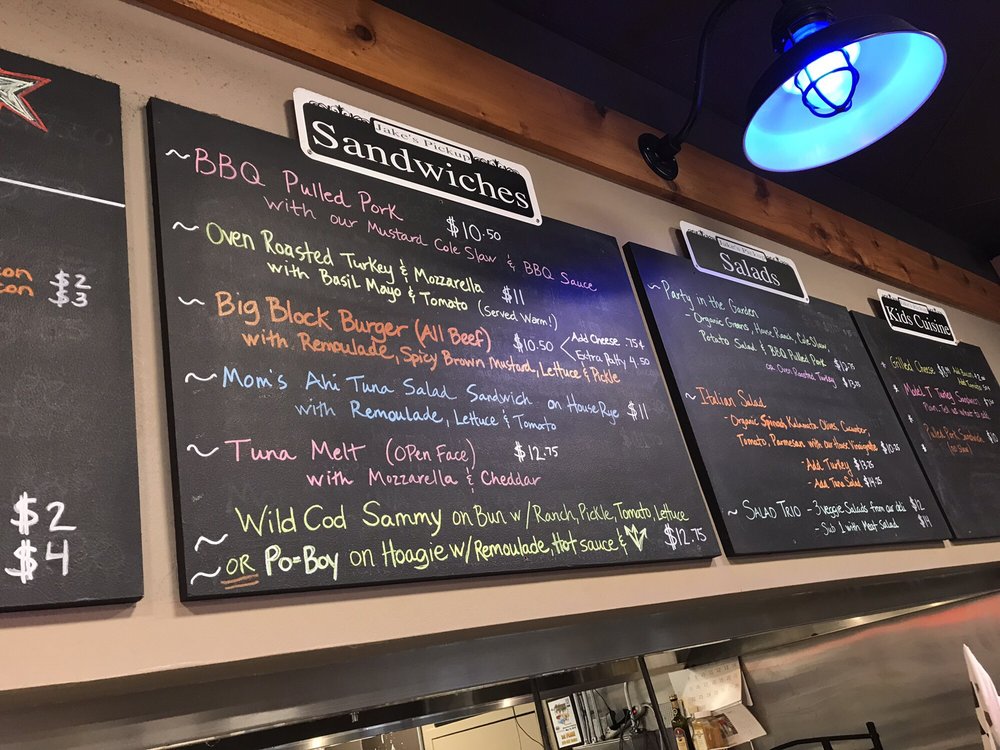 con $2
con $3
$2
$4
Jake's Pickup
Sandwiches
~BBQ Pulled Pork $10.50
with our Mustard Cole Slaw & BBQ Sauce
~Oven Roasted Turkey & Mozzarella
with Basil Mayo & Tomato (Served Warm!) $11
~Big Block Burger (All Beef) $10.50 Add Cheese .75¢
Extra Patty 4.50
with Remoulade, Spicy Brown Mustard, Lettuce & Pickle
~Mom's Ahi Tuna Salad Sandwich on House Rye $11
with Remoulade, Lettuce & Tomato
~Tuna Melt (Open Face) $12.75
with Mozzarella & Cheddar
~Wild Cod Sammy on Bun w/Ranch, Pickle, Tomato, Lettuce
~OR Po=Boy on Hoagie w/Remoulade, Hot sauce & $12.75
Salads
~Party in the Garden
- Organic Greens, House Ranch, Cole Slaw,
Potato Salad & BBQ Pulled Pork $12.75
or Oven Roasted Turkey $13.25
~Italian Salad
- Organic Spinach, Kalamata Olives, Cucumber
Tomato, Parmesan with our House Vinaigrette $10.25
- Add Turkey $13.25
- Add Tuna Salad $14.25
~Salad Trio - 3 veggie Salads from our deli $12
- Sub 1 with Meat Salad $14
Kids Cuisine
Grilled Cheese
Model T Turkey Sandwich
Plain. Tell us what to add.
Pulled Pork Sandwich